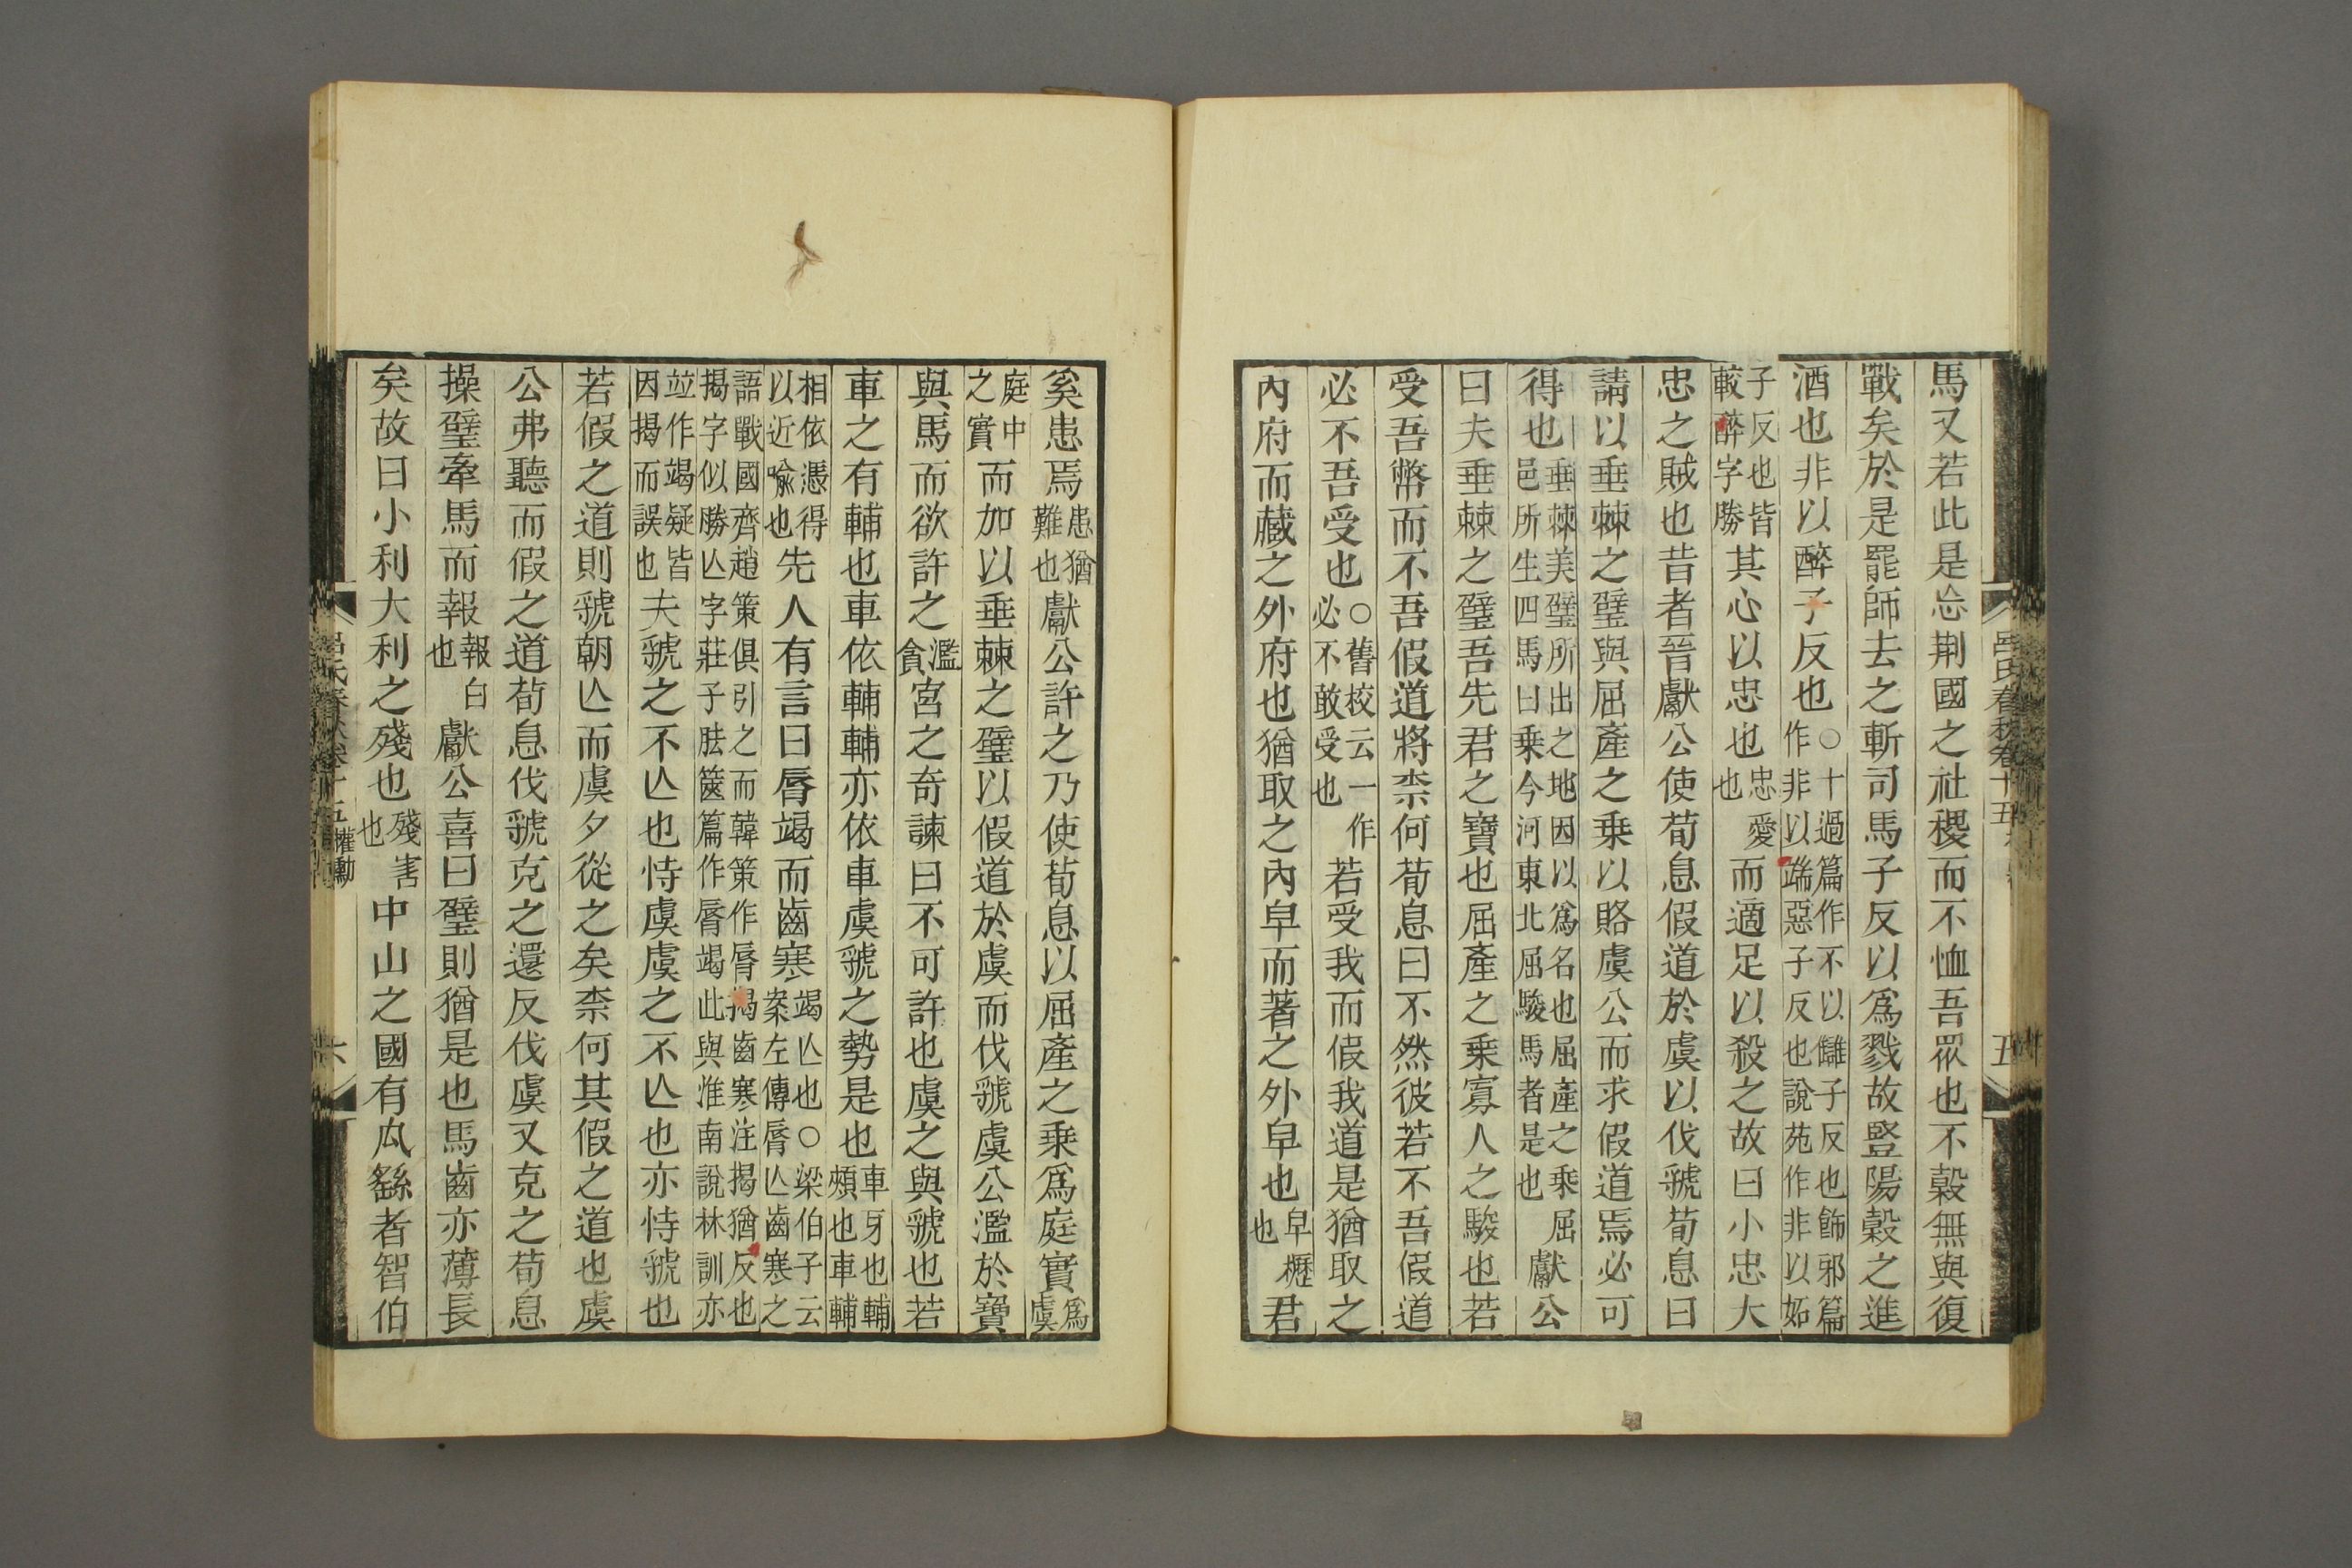 呂氏春秋卷十五 五
馬又若此是忘荊國之社稷而不恤吾眾也不穀無與復
戰矣於是罷師去之斬司馬子反以爲戮故豎陽穀之進
酒也非以醉子反也○十過篇作不以讎子反也飾邪篇作非以端惡子反也說苑作非以妬
子反也皆較醉字勝其心以忠也忠愛也而適足以殺之故曰小忠大
忠之賊也昔者晉獻公使荀息假道於虞以伐虢荀息曰
請以垂棘之璧與屈產之乘以賂虞公而求假道焉必可
得也垂棘美璧所出之地因以爲名也屈產之乘屈邑所生四馬曰乘今河東北屈駿馬者是也獻公
曰夫垂棘之璧吾先君之寶也屈產之乘寡人之駿也若
受吾幣而不吾假道將柰何荀息曰不然彼若不吾假道
必不吾受也○舊校云一作必不敢受也若受我而假我道是猶取之
內府而藏之外府也猶取之內皁而著之外皁也皁櫪也君
奚患焉患猶難也獻公許之乃使荀息以屈產之乘爲庭實爲虞
庭中之實而加以垂棘之璧以假道於虞而伐虢虞公濫於寶
與馬而欲許之濫貪宮之奇諫曰不可許也虞之與虢也若
車之有輔也車依輔輔亦依車虞虢之勢是也車牙也輔頰也車輔
相依憑得以近喻也先人有言曰脣竭而齒寒竭亾也○梁伯子云案左傳脣亾齒寒之
語戰國齊趙策俱引之而韓策作脣揭齒寒注揭猶反也揭字似勝亾字莊子胠篋篇作脣竭此與淮南說林訓亦
竝作竭疑皆因揭而誤也夫虢之不亾也恃虞虞之不亾也亦恃虢也
若假之道則虢朝亾而虞夕從之矣柰何其假之道也虞
公弗聽而假之道荀息伐虢克之還反伐虞又克之荀息
操璧牽馬而報報白也獻公喜曰璧則猶是也馬齒亦薄長
矣故曰小利大利之殘也殘害也中山之國有厹繇者智伯
呂氏春秋卷十五 權勳 六